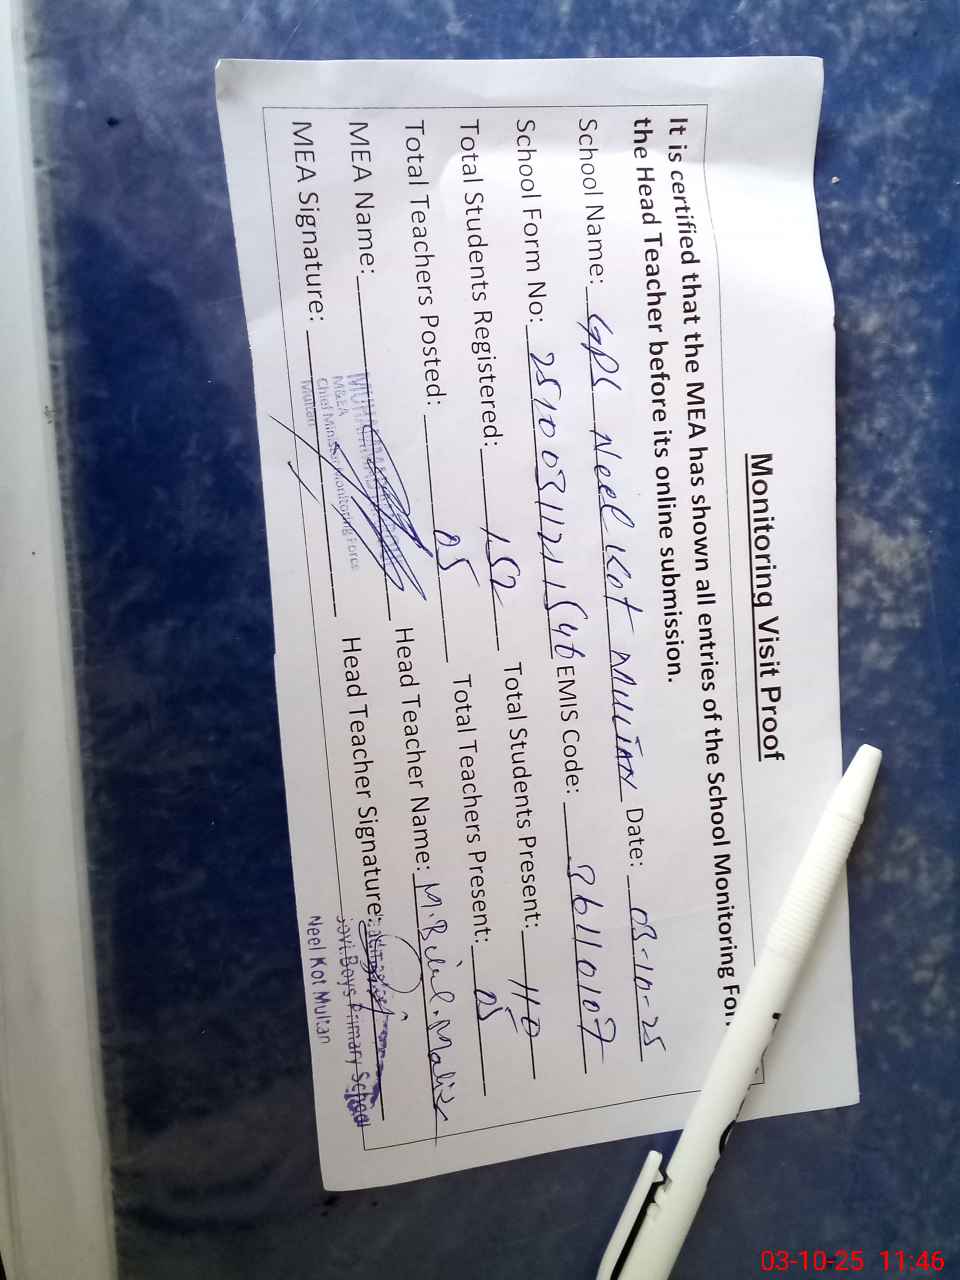 Monitoring Visit Proof
It is certified that the MEA has shown all entries of the School Monitoring For
the Head Teacher before its online submission.
School Name: GPS Neel Kot MULTAN Date: 03-10-25
School Form No: 251003112111546 EMIS Code: 36110107
Total Students Registered: 152 Total Students Present: 110
Total Teachers Posted: 05 Total Teachers Present: 05
MEA Name: Head Teacher Name: M. Bilal Malik
MEA Signature: Head Teacher Signature:
M&EA
Chief Minister Monitoring Force
Multan
Govt. Boys Primary School
Neel Kot Multan
03-10-25 11:46